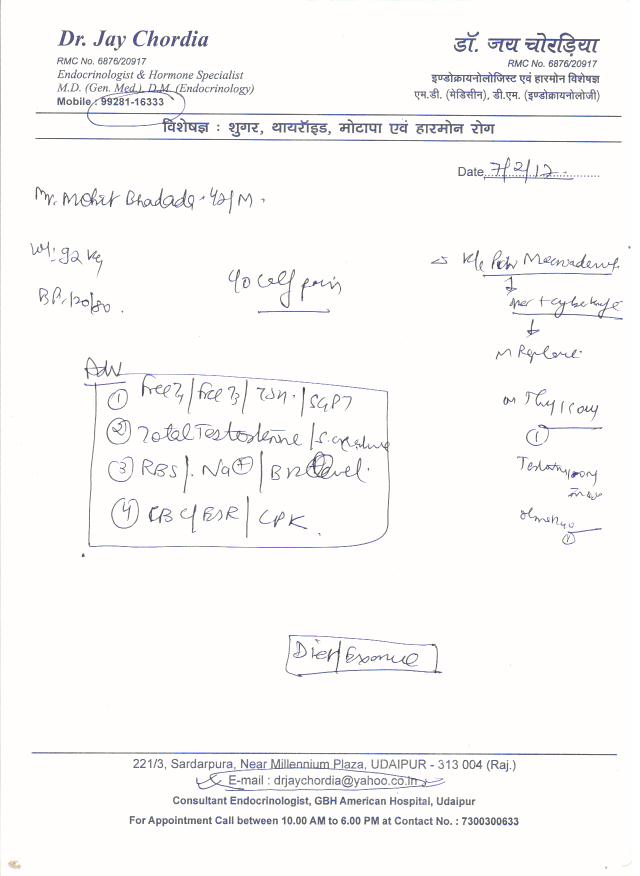 Dr. Jay Chordia
RMC No. 6876/20917
Endocrinologist & Hormone Specialist
M.D. (Gen. Med.), D.M. (Endocrinology)
Mobile : 99281-16333
डॉ. जय चोरड़िया
RMC No. 6876/20917
इण्डोक्रायनोलोजिस्ट एवं हारमोन विशेषज्ञ
एम.डी. (मेडिसीन), डी.एम. (इण्डोक्रायनोलोजी)
विशेषज्ञ : शुगर, थायरॉइड, मोटापा एवं हारमोन रोग
Date 7/2/17
Mr. Mohit 42/M.
Wt: 92 Kg
BP: 120/80.
40 calf pain
K/c
Adv
① Free T4 / Free T3 / TSH / SGPT
② Total Testosterone / S. creatinine
③ RBS / Na⊕ / B12 level.
④ CBC / ESR / CPK.
①
①
Diet/Exercise
221/3, Sardarpura, Near Millennium Plaza, UDAIPUR - 313 004 (Raj.)
E-mail : drjaychordia@yahoo.co.in
Consultant Endocrinologist, GBH American Hospital, Udaipur
For Appointment Call between 10.00 AM to 6.00 PM at Contact No. : 7300300633